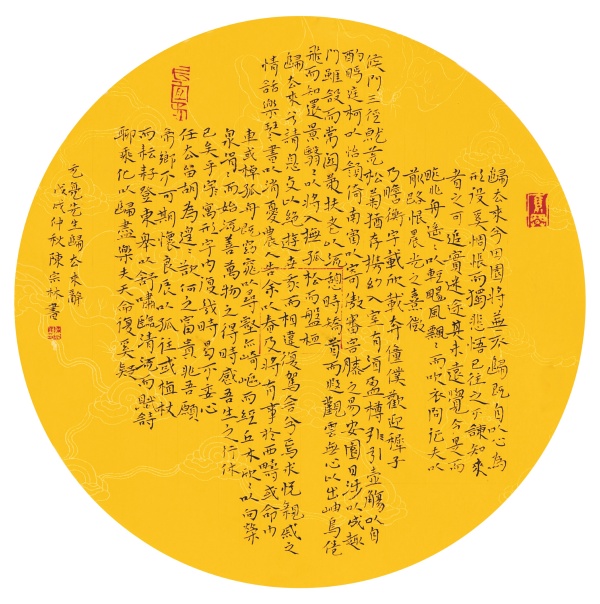 歸去來兮田園將蕪不歸既自以心為
形役奚惆悵而獨悲悟已往之不諫知來
者之可追實迷途其未遠覺今是而
昨非舟遙遙以輕颺風飄飄而吹衣問征夫以
前路恨晨光之熹微
乃瞻衡宇載欣載奔僮僕歡迎稚子
候門三徑就荒松菊猶存攜幼入室有酒盈樽引壺觴以自
酌眄庭柯以怡顏倚南窗以寄傲審容膝之易安園日涉以成趣
門雖設而常關策扶老以流憩時矯首而遐觀雲無心以出岫鳥倦
飛而知還景翳翳以將入撫孤松而盤桓
歸去來兮請息交以絕遊世我而相違復駕言兮焉求悅親戚之
情話樂琴書以消憂農人告余以春及將有事於西疇或命巾
車或棹孤舟既窈窕以尋壑亦崎嶇而經丘木欣欣以向榮
泉涓涓而始流善萬物之得時感吾生之行休
已矣乎寓形宇內復幾時曷不委心
任去留胡為遑遑欲何之富貴非吾願
帝鄉不可期懷良辰以孤往或植杖
而耘耔登東皋以舒嘯臨清流而賦詩
聊乘化以歸盡樂夫天命復奚疑
元亮先生歸去來辭
戊戌仲秋陳宗林書